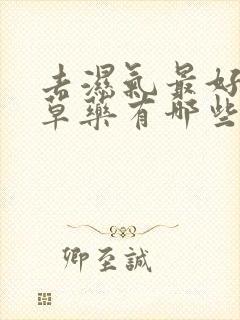 去濕氣最好
草藥有哪些
卿至誠